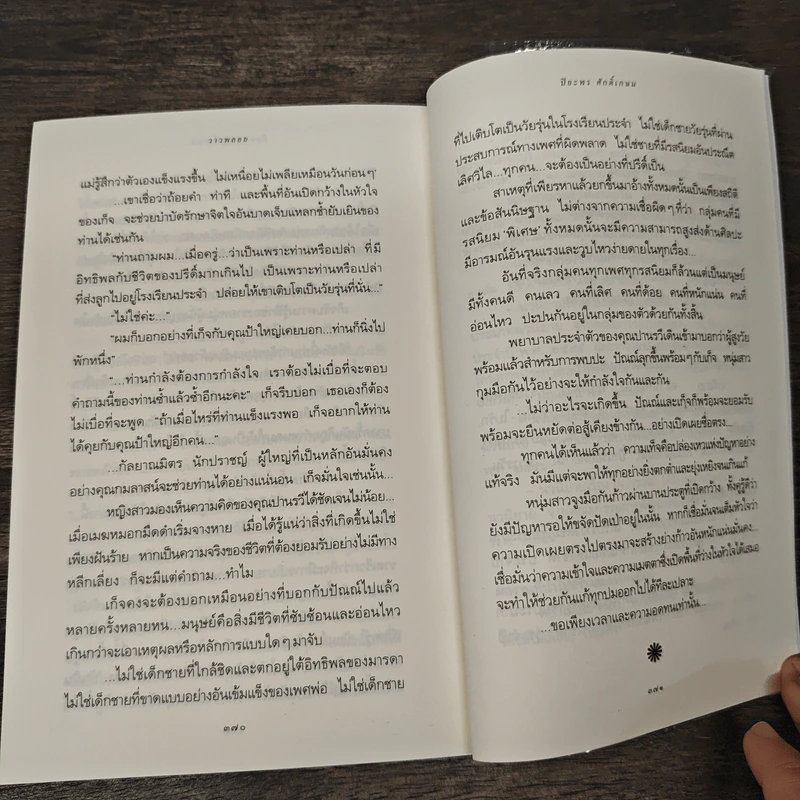 วาวพลอย
แม่รู้สึกว่าตัวเองแข็งแรงขึ้น ไม่เหนื่อยไม่เพลียเหมือนวันก่อนๆ'
...เขาเชื่อว่าถ้อยคำ ท่าที และพื้นที่อันเปิดกว้างในหัวใจ
ของเก็จ จะช่วยบำบัดรักษาจิตใจอันบาดเจ็บแหลกช้ำยับเยินของ
ท่านได้เช่นกัน
“ท่านถามผม...เมื่อครู่...ว่าเป็นเพราะท่านหรือเปล่า ที่มี
อิทธิพลกับชีวิตของปรีดิ์มากเกินไป เป็นเพราะท่านหรือเปล่า
ที่ส่งลูกไปอยู่โรงเรียนประจำ ปล่อยให้เขาเติบโตเป็นวัยรุ่นที่นั่น...”
“ไม่ใช่ค่ะ...”
“ผมก็บอกอย่างที่เก็จกับคุณป้าใหญ่เคยบอก...ท่านก็นิ่งไป
พักหนึ่ง”
“...ท่านกำลังต้องการกำลังใจ เราต้องไม่เบื่อที่จะตอบ
คำถามนี้ของท่านซ้ำแล้วซ้ำอีกนะคะ” เก็จรีบบอก เธอเองก็ต้อง
ไม่เบื่อที่จะพูด “ถ้าเมื่อไหร่ที่ท่านแข็งแรงพอ เก็จอยากให้ท่าน
ได้คุยกับคุณป้าใหญ่อีกคน...”
...กัลยาณมิตร นักปราชญ์ ผู้ใหญ่ที่เป็นหลักอันมั่นคง
อย่างคุณกมลาสน์จะช่วยท่านได้อย่างแน่นอน เก็จมั่นใจเช่นนั้น...
หญิงสาวมองเห็นความคิดของคุณปานรวีได้ชัดเจนไม่น้อย...
เมื่อเมฆหมอกมืดดำเริ่มจางหาย เมื่อได้รู้แน่ว่าสิ่งที่เกิดขึ้นไม่ใช่
เพียงฝันร้าย หากเป็นความจริงของชีวิตที่ต้องยอมรับอย่างไม่มีทาง
หลีกเลี่ยง ก็จะมีแต่คำถาม...ทำไม
เก็จคงจะต้องบอกเหมือนอย่างที่บอกกับปัณณ์ไปแล้ว
หลายครั้งหลายหน...มนุษย์คือสิ่งมีชีวิตที่ซับซ้อนและอ่อนไหว
เกินกว่าจะเอาเหตุผลหรือหลักการแบบใดๆ มาจับ
...ไม่ใช่เด็กชายที่ใกล้ชิดและตกอยู่ใต้อิทธิพลของมารดา
ไม่ใช่เด็กชายที่ขาดแบบอย่างอันเข้มแข็งของเพศพ่อ ไม่ใช่เด็กชาย
๓๗๐
ปิยะพร ศักดิ์เกษม
ที่ไปเติบโตเป็นวัยรุ่นในโรงเรียนประจำ ไม่ใช่เด็กชายวัยรุ่นที่ผ่าน
ประสบการณ์ทางเพศที่ผิดพลาด ไม่ใช่ชายที่มีรสนิยมอันประณีต
เลิศวิไล...ทุกคน...จะต้องเป็นอย่างที่ปรีดิ์เป็น
สาเหตุที่เพียรหาแล้วยกขึ้นมาอ้างทั้งหมดนั้นเป็นเพียงสถิติ
และข้อสันนิษฐาน ไม่ต่างจากความเชื่อผิดๆ ที่ว่า กลุ่มคนที่มี
รสนิยม ‘พิเศษ’ ทั้งหมดนั้นจะมีความสามารถสูงส่งด้านศิลปะ
มีอารมณ์อันรุนแรงและวูบไหวง่ายดายในทุกเรื่อง...
อันที่จริงกลุ่มคนทุกเพศทุกรสนิยมก็ล้วนแต่เป็นมนุษย์
มีทั้งคนดี คนเลว คนที่เลิศ คนที่ด้อย คนที่หนักแน่น คนที่
อ่อนไหว ปะปนกันอยู่ในกลุ่มของตัวด้วยกันทั้งสิ้น
พยาบาลประจำตัวของคุณปานรวีเดินเข้ามาบอกว่าผู้สูงวัย
พร้อมแล้วสำหรับการพบปะ ปัณณ์ลุกขึ้นพร้อมๆ กับเก็จ หนุ่มสาว
กุมมือกันไว้อย่างจะให้กำลังใจกันและกัน
...ไม่ว่าอะไรจะเกิดขึ้น ปัณณ์และเก็จก็พร้อมจะยอมรับ
พร้อมจะยืนหยัดต่อสู้เคียงข้างกัน...อย่างเปิดเผยซื่อตรง...
ทุกคนได้เห็นแล้วว่า ความเท็จคือปล่องเหวแห่งปัญหาอย่าง
แท้จริง มันมีแต่จะพาให้ทุกอย่างยิ่งตกต่ำและยุ่งเหยิงจนเกินแก้
หนุ่มสาวจูงมือกันก้าวผ่านบานประตูที่เปิดกว้าง ทั้งคู่รู้ดีว่า
ยังมีปัญหารอให้ขจัดปัดเป่าอยู่ในนั้น หากก็เชื่อมั่นจนเต็มหัวใจว่า
ความเปิดเผยตรงไปตรงมาจะสร้างย่างก้าวอันหนักแน่นมั่นคง...
เชื่อมั่นว่าความเข้าใจและความเมตตาซึ่งเปิดพื้นที่ว่างในหัวใจได้เสมอ
จะทำให้ช่วยกันแก้ทุกปมออกไปได้ทีละเปลาะ
...ขอเพียงเวลาและความอดทนเท่านั้น...
๓๗๑